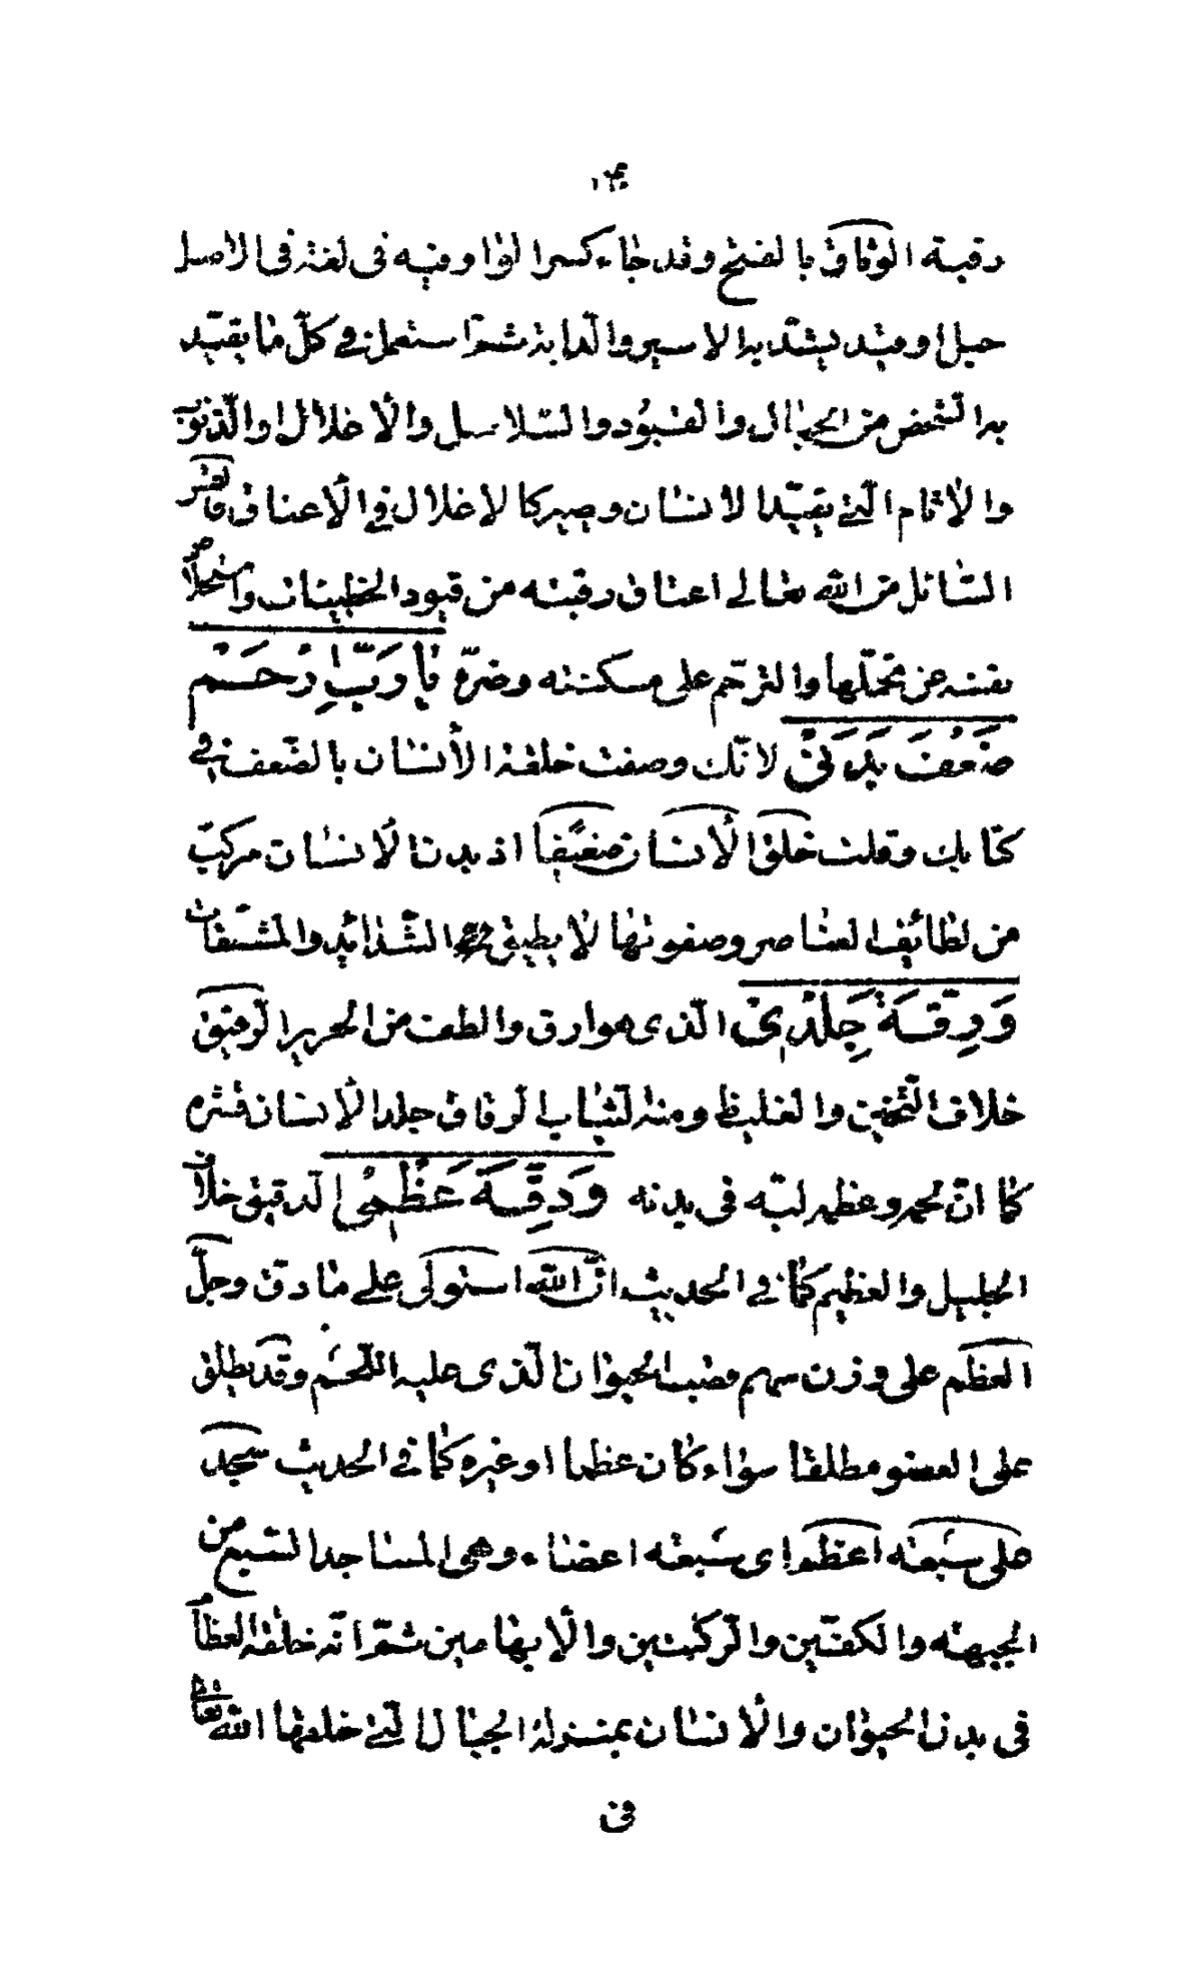 رقبته الوثاق بالفتح وقد جاء كسر الواو فيه في لغة في الاصل
حبل او قيد يشدّ به الاسير والدابة ثمّ استعمل في كلّ ما يقيّد
به الشخص من الحبال والقيود والسّلاسل والأغلال والذنوب
والاثام الّتي تقيّد الانسان وتصير كالاغلال في الأعناق
السّائل من الله تعالى اعتاق رقبته من قيود الخطيئات واستخلاص
نفسه عن تحمّلها والترحّم على مسكنته وضرّه يا رَبِّ ارْحَمْ
ضَعْفَ بَدَني لانّك وصفت خلقة الأنسان بالضّعف في
كتابك وقلت خلق الأنسان ضعيفًا اذ بدن الأنسان مركّب
من لطائف العناصر وصفوتها لا يطيق الشّدائد والمشقّات
وَرِقَّةَ جِلْدي الّذي هو ارق والطف من الحرير الرقيق
خلاف الثّخين والغليظ ومنه الثّياب الرقاق جلد الأنسان قشره
كما انّ لحمه وعظمه لبّه في بدنه وَدِقَّةَ عَظْمي الدقيق خلاف
الجليل والعظيم كما في الحديث انّ الله استولى على ما دقّ وجلّ
العظم على وزن سهم قصب الحيوان الّذي عليه اللّحم وقد يطلق
على العضو مطلقا سواء كان عظما او غيره كما في الحديث سجد
على سبعة اعظم اي سبعة اعضاء وهي المساجد السّبع من
الجبهة والكفّين والرّكبتين والأبهامين ثمّ انّه خلقة العظام
في بدن الحيوان والأنسان بمنزلة الجبال الّتي خلقها الله تعالى
في